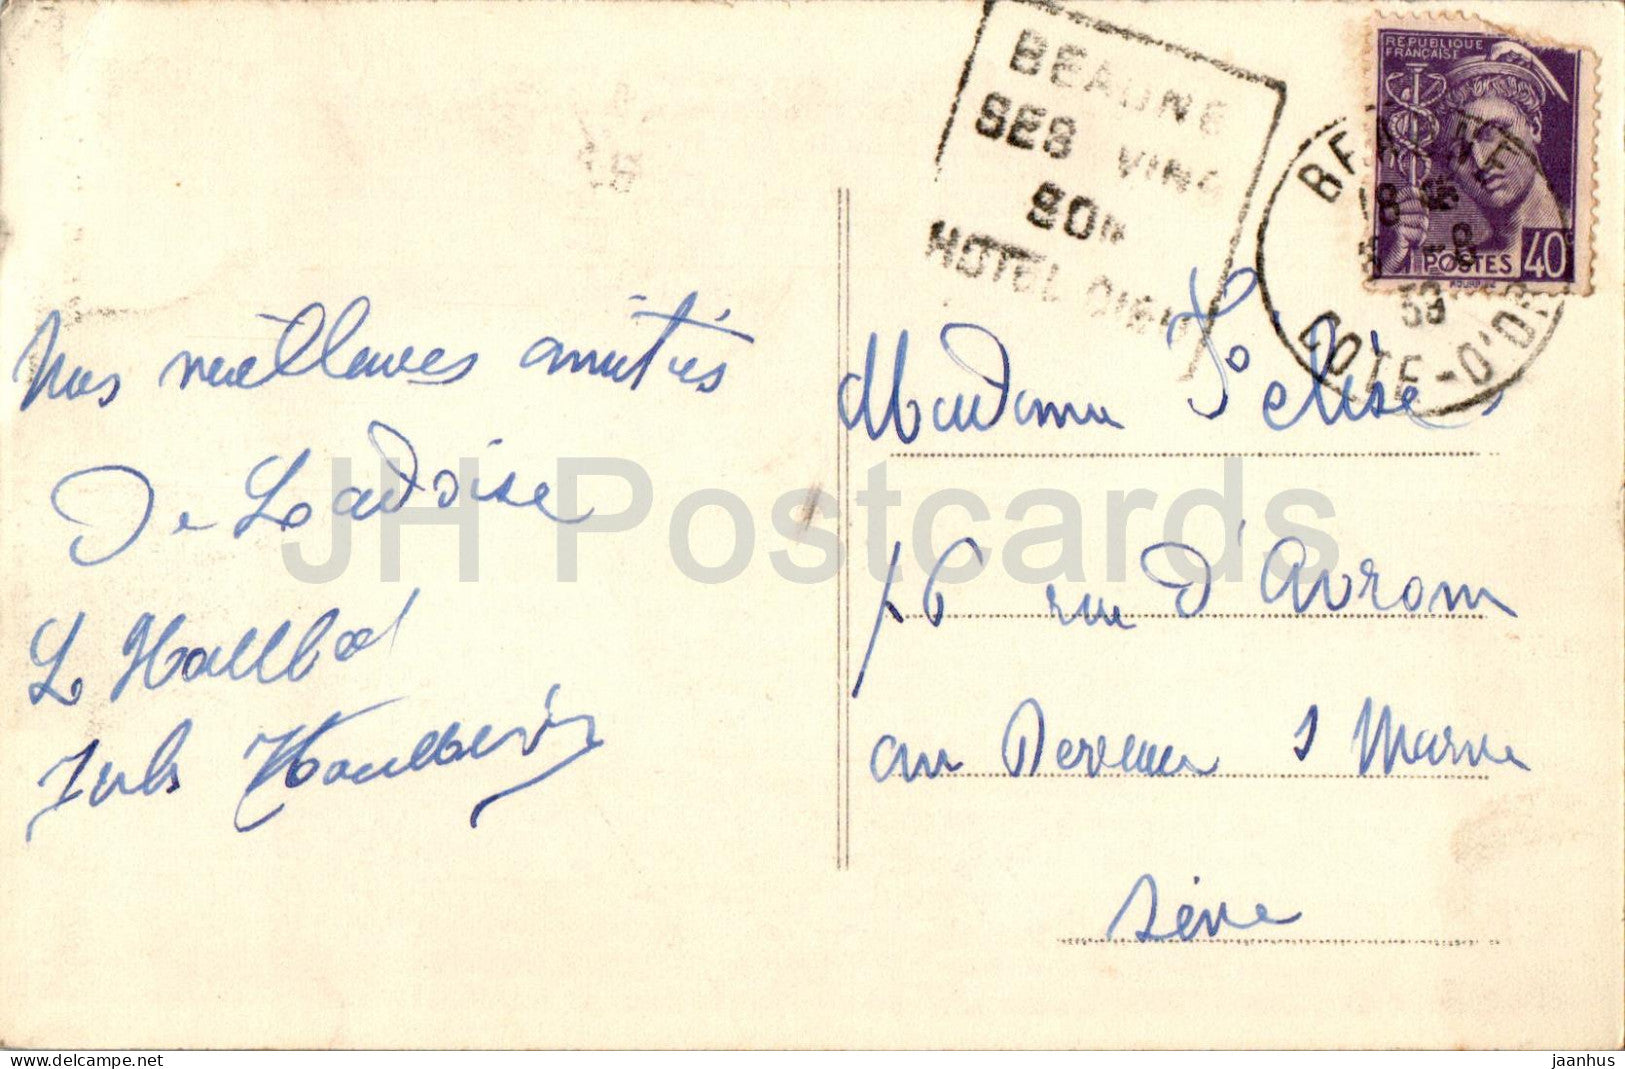 BEAUNE
SES VINS
SON
HOTEL DIEU
REPUBLIQUE
FRANÇAISE
POSTES 40c
BEAUNE
18
39
COTE-D'OR
Nos meilleures amitiés
De Ladoise
Madame Félisé
16 rue d'Avrom
au Perreux s Marne
Seine
JH Postcards
delcampe.net
jaanhus